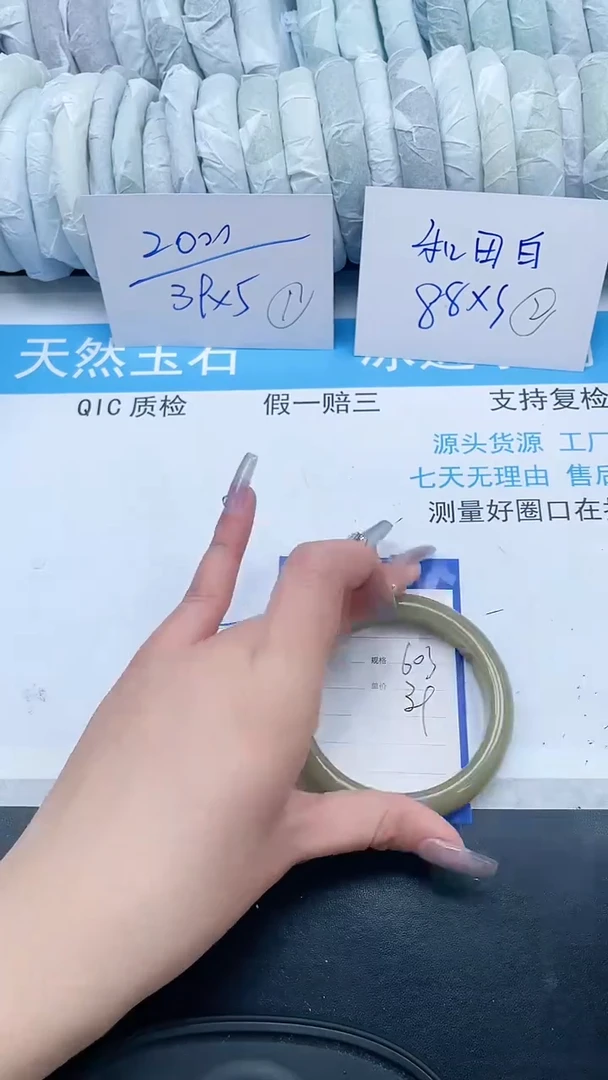 39x5 ①
和田白
88x5 ②
天然玉石
QIC 质检
假一赔三
支持复检
源头货源 工厂
七天无理由 售后
测量好圈口在
规格 603
单价 39